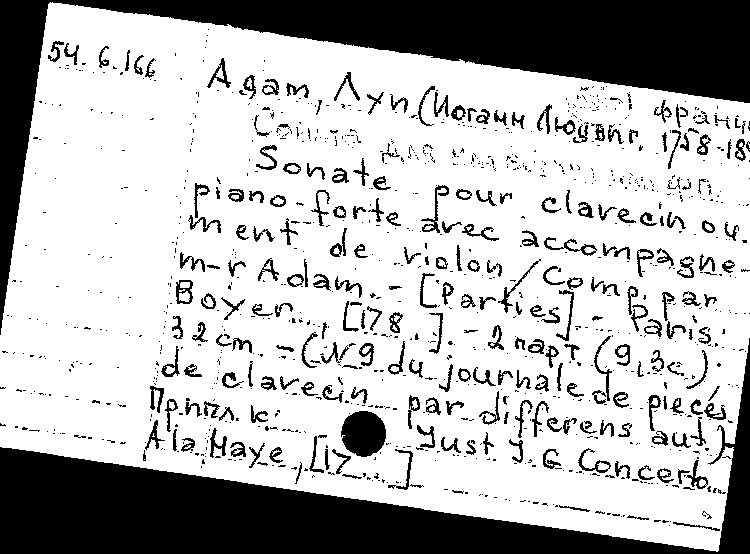 54. 6.166
Адам, Луи (Иоганн Людвиг. 1758-18
Соната для клавесина или фп.
Sonate pour clavecin ou
piano-forte avec accompagne-
ment de violon / Comp. par
m-r Adam. - [Parties] - Paris:
Boyer..., [178.]. - 2 парт. (9,3с.);
32 cm. - (N9 du journale de pieces
de clavecin par differens aut.)
Припл. к: Just J. G Concerto...
A la Haye, [17...]